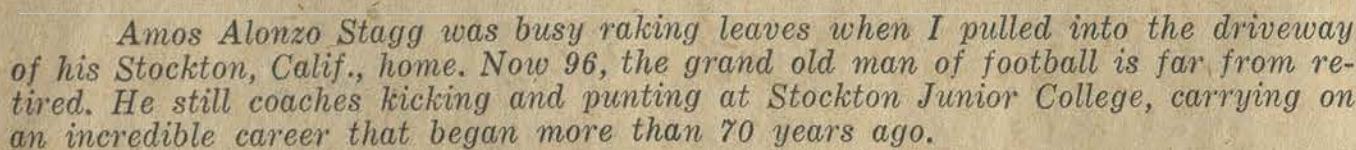 Amos Alonzo Stagg was busy raking leaves when I pulled into the driveway
of his Stockton, Calif., home. Now 96, the grand old man of football is far from re-
tired. He still coaches kicking and punting at Stockton Junior College, carrying on
an incredible career that began more than 70 years ago.